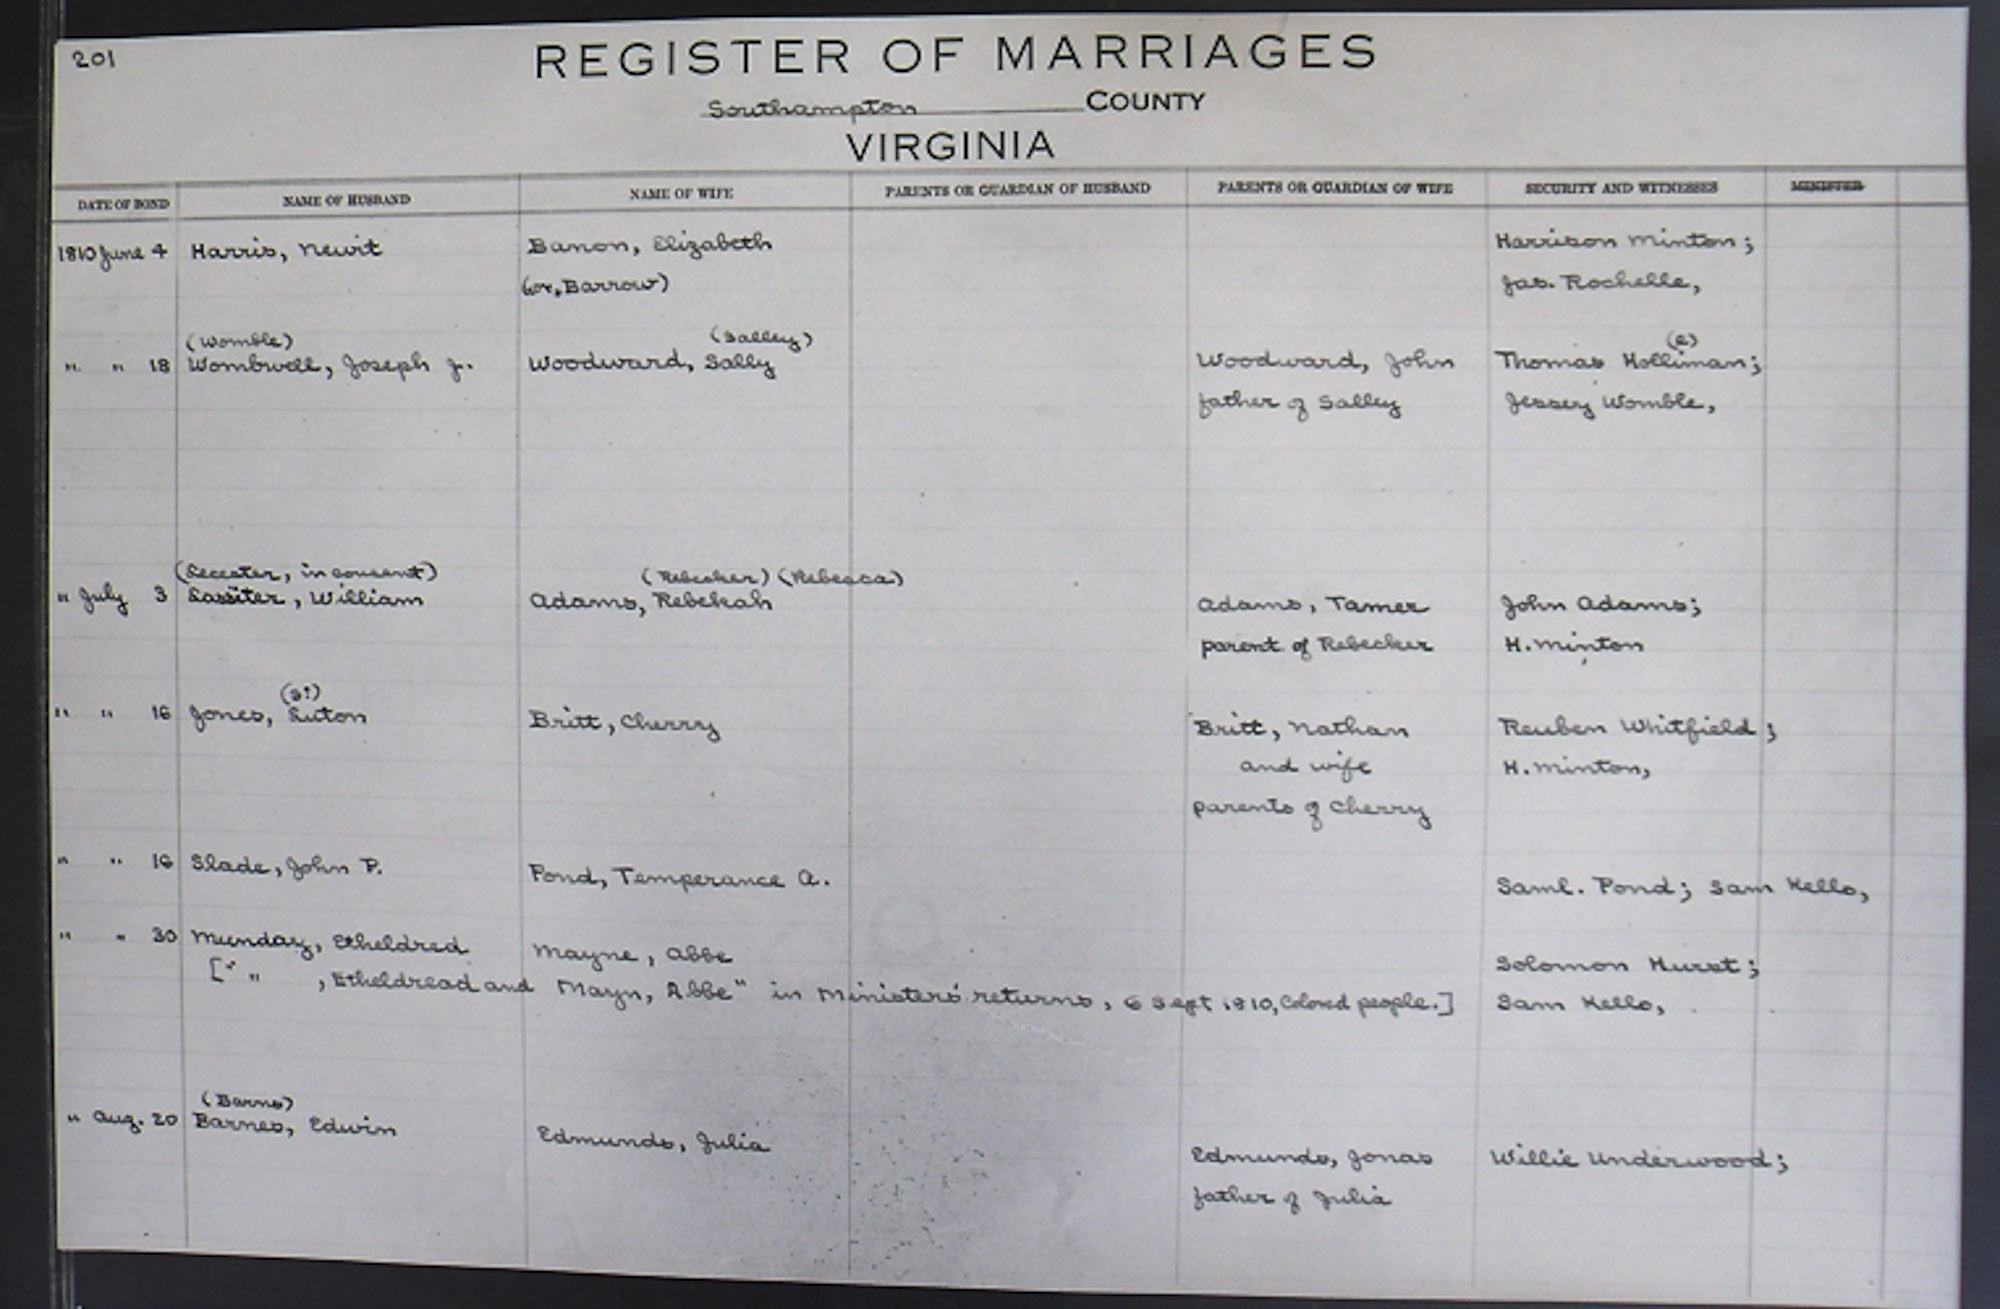 201
REGISTER OF MARRIAGES
Southampton COUNTY
VIRGINIA
DATE OF BOND NAME OF HUSBAND NAME OF WIFE PARENTS OR GUARDIAN OF HUSBAND PARENTS OR GUARDIAN OF WIFE SECURITY AND WITNESSES MINISTER
1810 June 4 Harris, Newit Banon, Elizabeth Harrison Minton;
(or, Barrow) Jas. Rochelle,
(Womble) (Salley) (e)
" " 18 Wombwell, Joseph J. Woodward, Sally Woodward, John Thomas Holliman;
father of Salley Jessey Womble,
(Leceter, in consent) (Rebecker) (Rebecca)
" July 3 Lassiter, William Adams, Rebekah Adams, Tamer John Adams;
parent of Rebecker H. Minton
(S?)
" " 16 Jones, Luton Britt, Cherry Britt, Nathan Reuben Whitfield;
and wife H. Minton,
parents of Cherry
" " 16 Slade, John P. Pond, Temperance A. Saml. Pond; Sam Kello,
" " 30 Munday, Etheldred Mayne, Abbe Solomon Hurst;
[" " , Etheldread and Mayn, Abbe" in Ministers' returns, 6 Sept 1810, Colored people.] Sam Kello,
(Barns)
" Aug. 20 Barnes, Edwin Edmunds, Julia Edmunds, Jonas Willie Underwood;
father of Julia